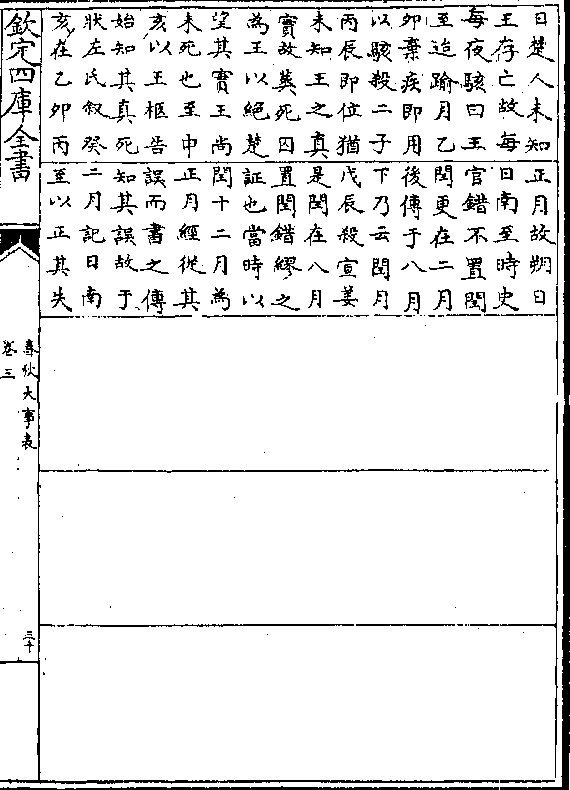 欽定四庫全書
春秋大事表
卷三
三十
日楚人未知
王存亡故每
每夜駭曰王
至迨踰月乙
卯棄疾即用
以駭殺二子
丙辰即位猶
未知王之真
實故葬死囚
為王以絕楚
望其實王尚
未死也至申
亥以王柩告
始知其真死
狀左氏叙癸
亥在乙卯丙
正月故朔日
日南至時史
官錯不置閏
閏更在二月
後傳于八月
下乃云閏月
戊辰殺宣姜
是閏在八月
置閏錯繆之
証也當時以
閏十二月為
正月經從其
誤而書之傳
知其誤故于
二月記日南
至以正其失